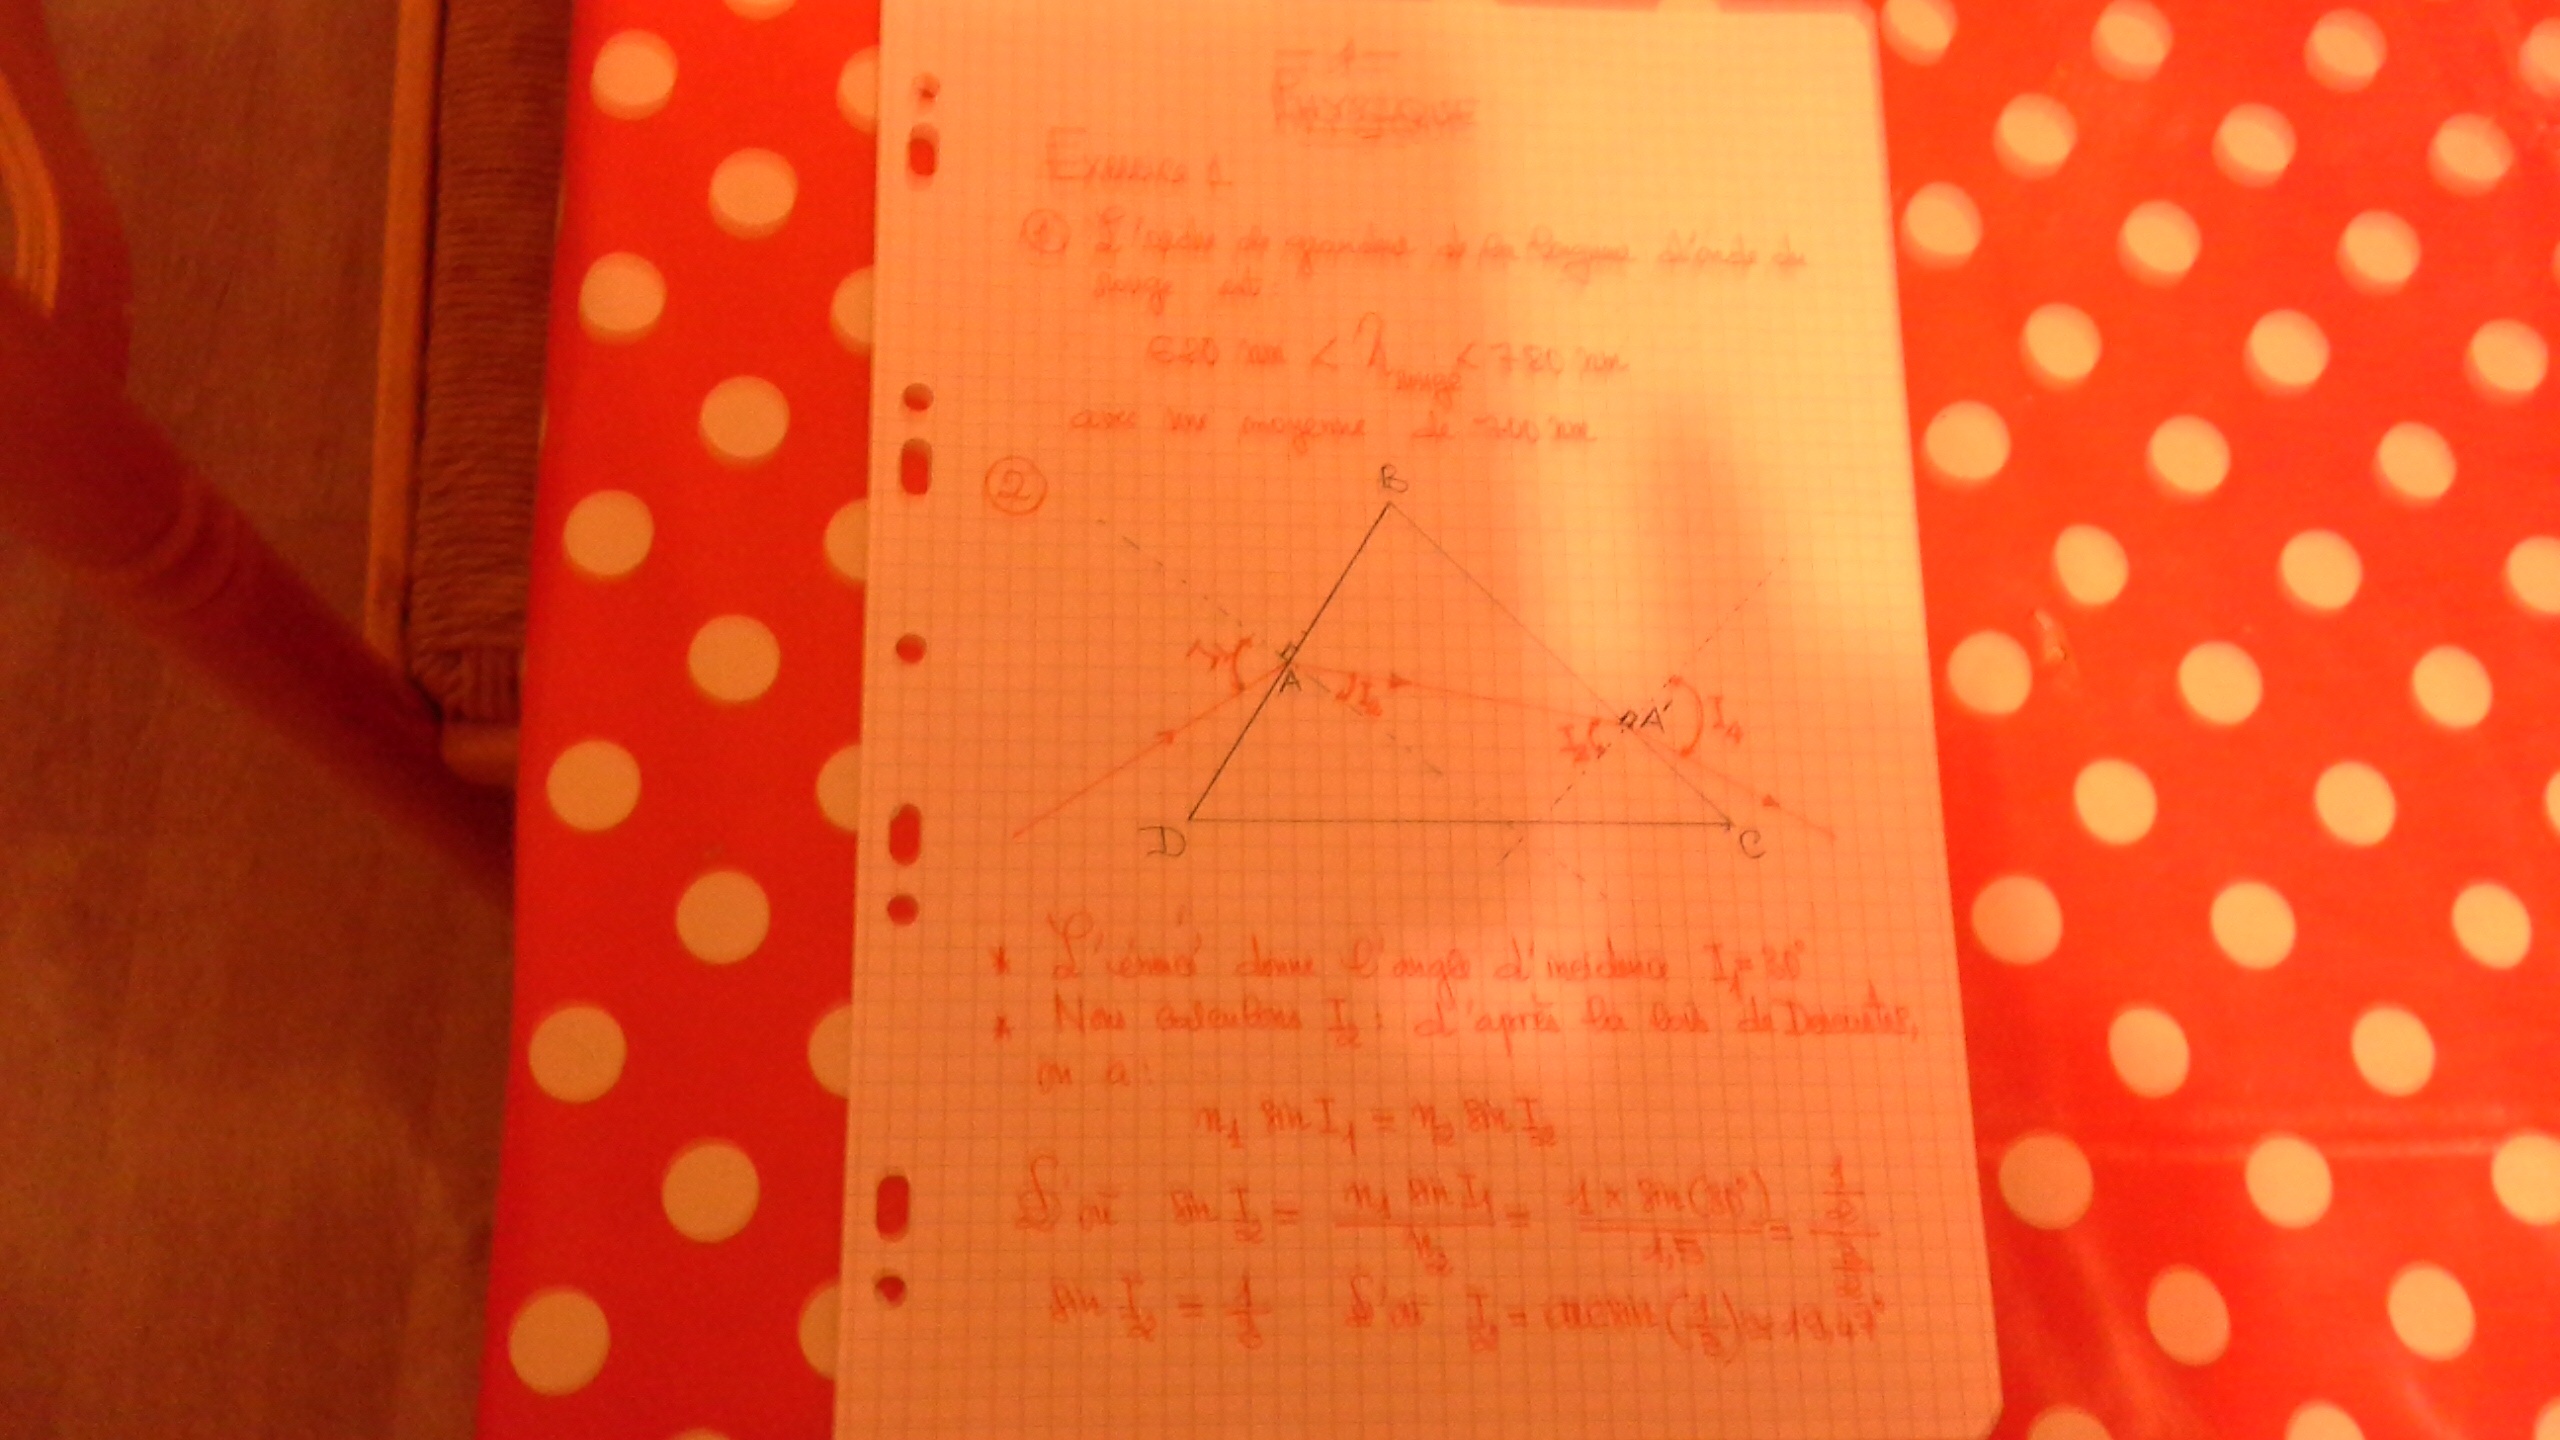 - 1 -
PHYSIQUE
Exercice 1
① L'ordre de grandeur de la longueur d'onde du
rouge est :
620 nm < λ rouge < 780 nm
avec une moyenne de 700 nm
②
B
A
I2
I3
A'
I4
D
C
* L'énoncé donne l'angle d'incidence I1 = 30°
* Nous calculons I2 : d'après les lois de Descartes,
on a :
n1 sin I1 = n2 sin I2
D'où sin I2 = n1 sin I1 / n2 = 1 × sin(30°) / 1,5 = 1/2 / 3/2
sin I2 = 1/3 D'où I2 = arcsin(1/3) ≈ 19,47°